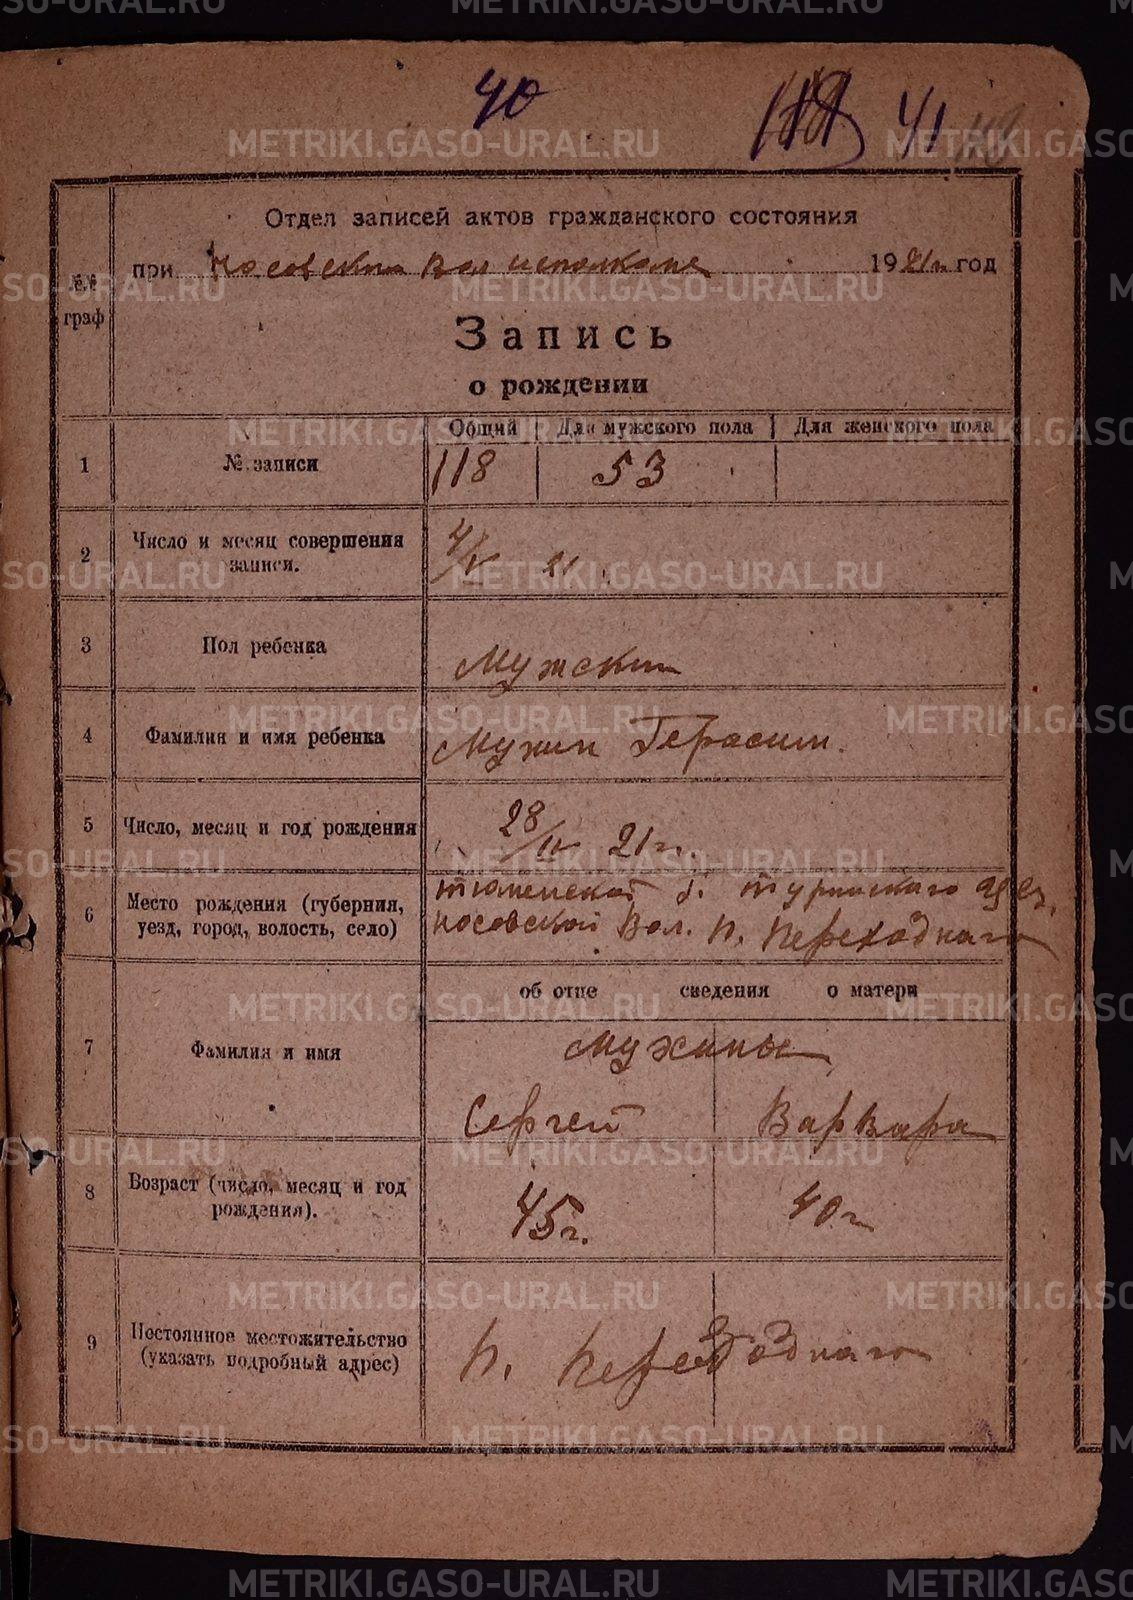 40 41
Отдел записей актов гражданского состояния
при Носовском Вол исполкоме 1921 г год
№№ граф
Запись
о рождении
Общий Для мужского пола Для женского пола
1 № записи 118 53
2 Число и месяц совершения записи. 4/V 21
3 Пол ребенка Мужский
4 Фамилия и имя ребенка Мужин Герасим.
5 Число, месяц и год рождения 28/IV 21 г.
6 Место рождения (губерния, тюменской г. туринского уезд.
уезд, город, волость, село) носовской Вол. п. Переходнаго
об отце сведения о матери
7 Фамилия и имя Мужины
Сергей Варвара
8 Возраст (число, месяц и год рождения). 45 г. 40 г
9 Постоянное местожительство
(указать подробный адрес) п. Переходнаго
METRIKI.GASO-URAL.RU